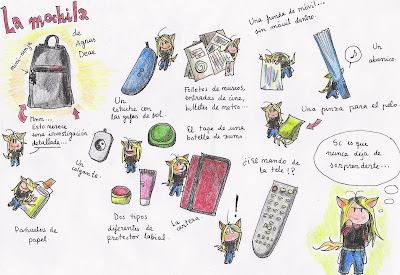 La mochila
de Agnus
Deae
Mmm...
Esto merece
una investigación
detallada...
Un
estuche con
las gafas de sol.
Folletos de museos,
entradas de cine,
billetes de metro...
Una funda de móvil...
sin móvil dentro.
Un
abanico.
Una pinza para el pelo.
Un
colgante.
El tape de una
botella de zumo.
Pañuelos de
papel.
Dos tipos
diferentes de
protector labial.
La cartera
¿¡El mando de
la tele!?
!
Si es que
nunca deja de
sorprenderte...